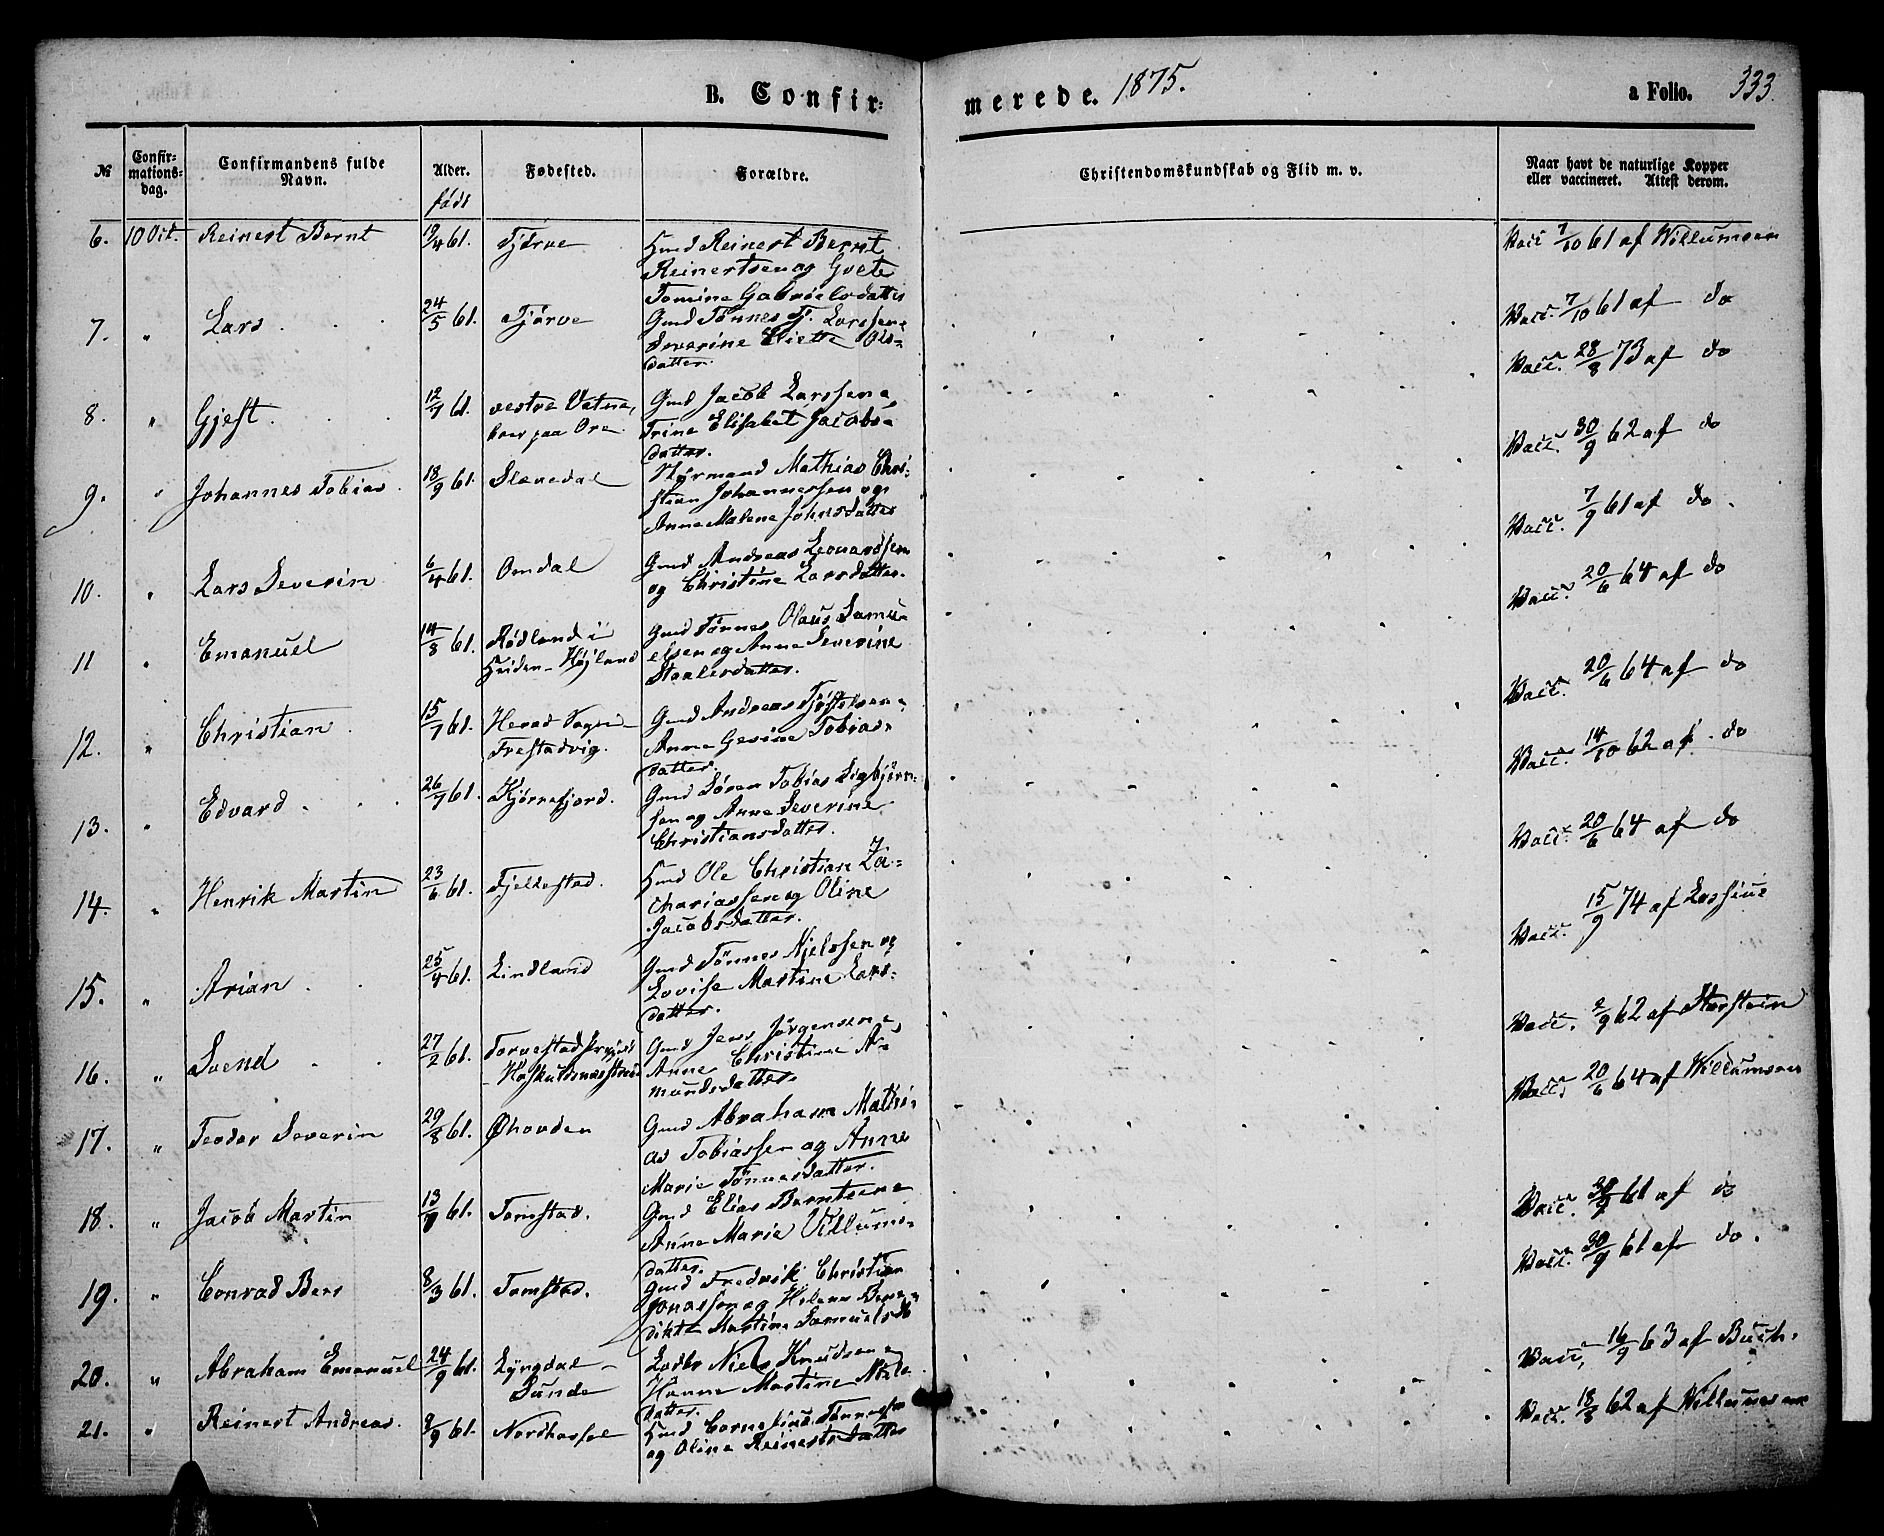 B. Confir- merede. 1875. a Folio. 333.
№ Confir-mations-dag. Confirmandens fulde Navn. Alder. født Fødested. Forældre. Christendomskundskab og Flid m. v. Naar havt de naturlige Kopper eller vaccineret. Attest derom.
6. 10 Oct. Reinert Bernt 19/4 61. Tjørve Hmd Reinert Bernt Vacc 7/10 61 af Willumsen
Reinertsen og Grete
Tomine Gabrielsdatter
7. " Lars 24/5 61. Tjørve Gmd Tønnes Tj. Larssen Vacc. 7/10 61 af do
Severine Eliette Ols-
datter. Vacc. 28/8 73 af do
8. " Gjest 12/7 61. vestre Vatne Gmd Jacob Larssen
paa Øre Trine Elisabet Jacobs-
datter. Vacc. 30/9 62 af do
9. " Johannes Tobias 18/9 61. Slevedal Styrmand Mathias Chri-
stian Johannessen og
Anne Malene Johnsdatter Vacc. 7/9 61 af do.
10. " Lars Severin 6/4 61. Omdal Gmd Andreas Leonardsen
og Christine Larsdatter. Vacc. 20/6 64 af do
11 " Emanuel 14/8 61. Rødland i Gmd Tønnes Olaus Samu-
Hviden-Højland elsen og Anne Severine
Staalesdatter. Vacc. 20/6 64 af do
12. " Christian 15/7 61. Herad Sogn i Gmd Andreas Tjøstelsen
Frestadvig. Anne Gesine Tobias-
datter. Vacc. 14/10 62 af do
13. " Edvard 26/7 61. Kjørrefjord. Gmd Søren Tobias Sigbjørn-
sen og Anne Severine
Christiansdatter. Vacc. 20/6 64 af do
14. " Henrik Martin 23/6 61. Fjeldestad. Hmd Ole Christian Za-
chariassen og Oline
Jacobsdatter. Vacc. 15/9 74 af Lassius
15. " Arian 25/4 61. Lindland Gmd Tønnes Njelssen og
Lovise Martine Lars-
datter. Vacc. 2/9 62 af Storstein
16. " Svend 27/2 61. Torvestad Prgjeld Gmd Jens Jørgensen
Anne Christine As-
mundsdatter. Vacc. 20/6 64 af Willumsen
17. " Teodor Severin 29/8 61. Øhovden Gmd Abraham Mathi-
as Tobiassen og Anne
Marie Tønnesdatter.
18. " Jacob Martin 13/9 61. Tomstad. Gmd Elias Berntsen Vacc. 30/9 61 af do
Anne Marie Villums-
datter. Vacc. 30/9 61 af do.
19. " Conrad Bers 8/3 61. Tomstad. Gmd Fredrik Christian
Jonassen og Helene Bene-
dikte Martine Samuelsd.
20. " Abraham Emanuel 24/9 61. Lyngdal- Niels Knudsen Vacc. 16/9 63 af Buch.
Sunde Hanne Martine Niels-
datter.
21. " Reinert Andreas 9/9 61. Nordhassel Hmd Cornelius Tønnessen Vacc. 18/8 62 af Willumsen
og Oline Reinertsdatter